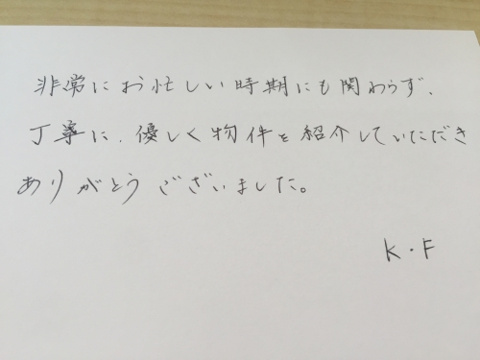 非常にお忙しい時期にも関わらず、
丁寧に、優しく物件を紹介していただき
ありがとうございました。
K・F